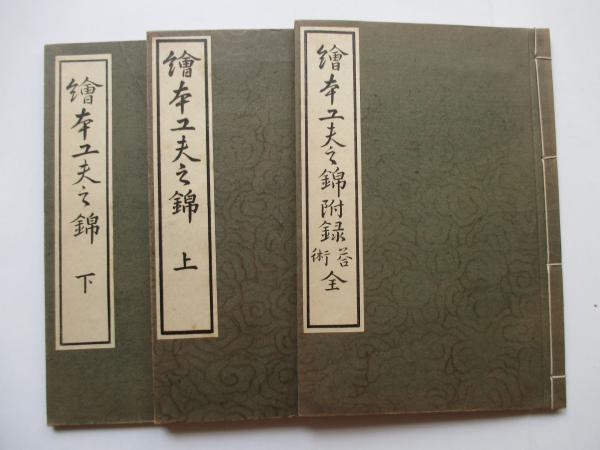 繪本工夫之錦附録荅術全
繪本工夫之錦 上
繪本工夫之錦 下